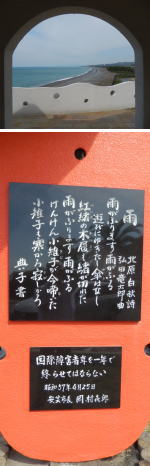 雨
北原白秋詩
弘田竜太郎曲
雨がふります雨がふる
遊びにゆきたし傘はなし
紅緒の木履も緒が切れた
雨がふります雨がふる
けんけん小雉子が今啼いた
小雉子も寒かろ寂しかろ
典子書
国際障害者年を一年で
終らせてはならない
昭和57年4月25日
安芸市長 岡村雄郎